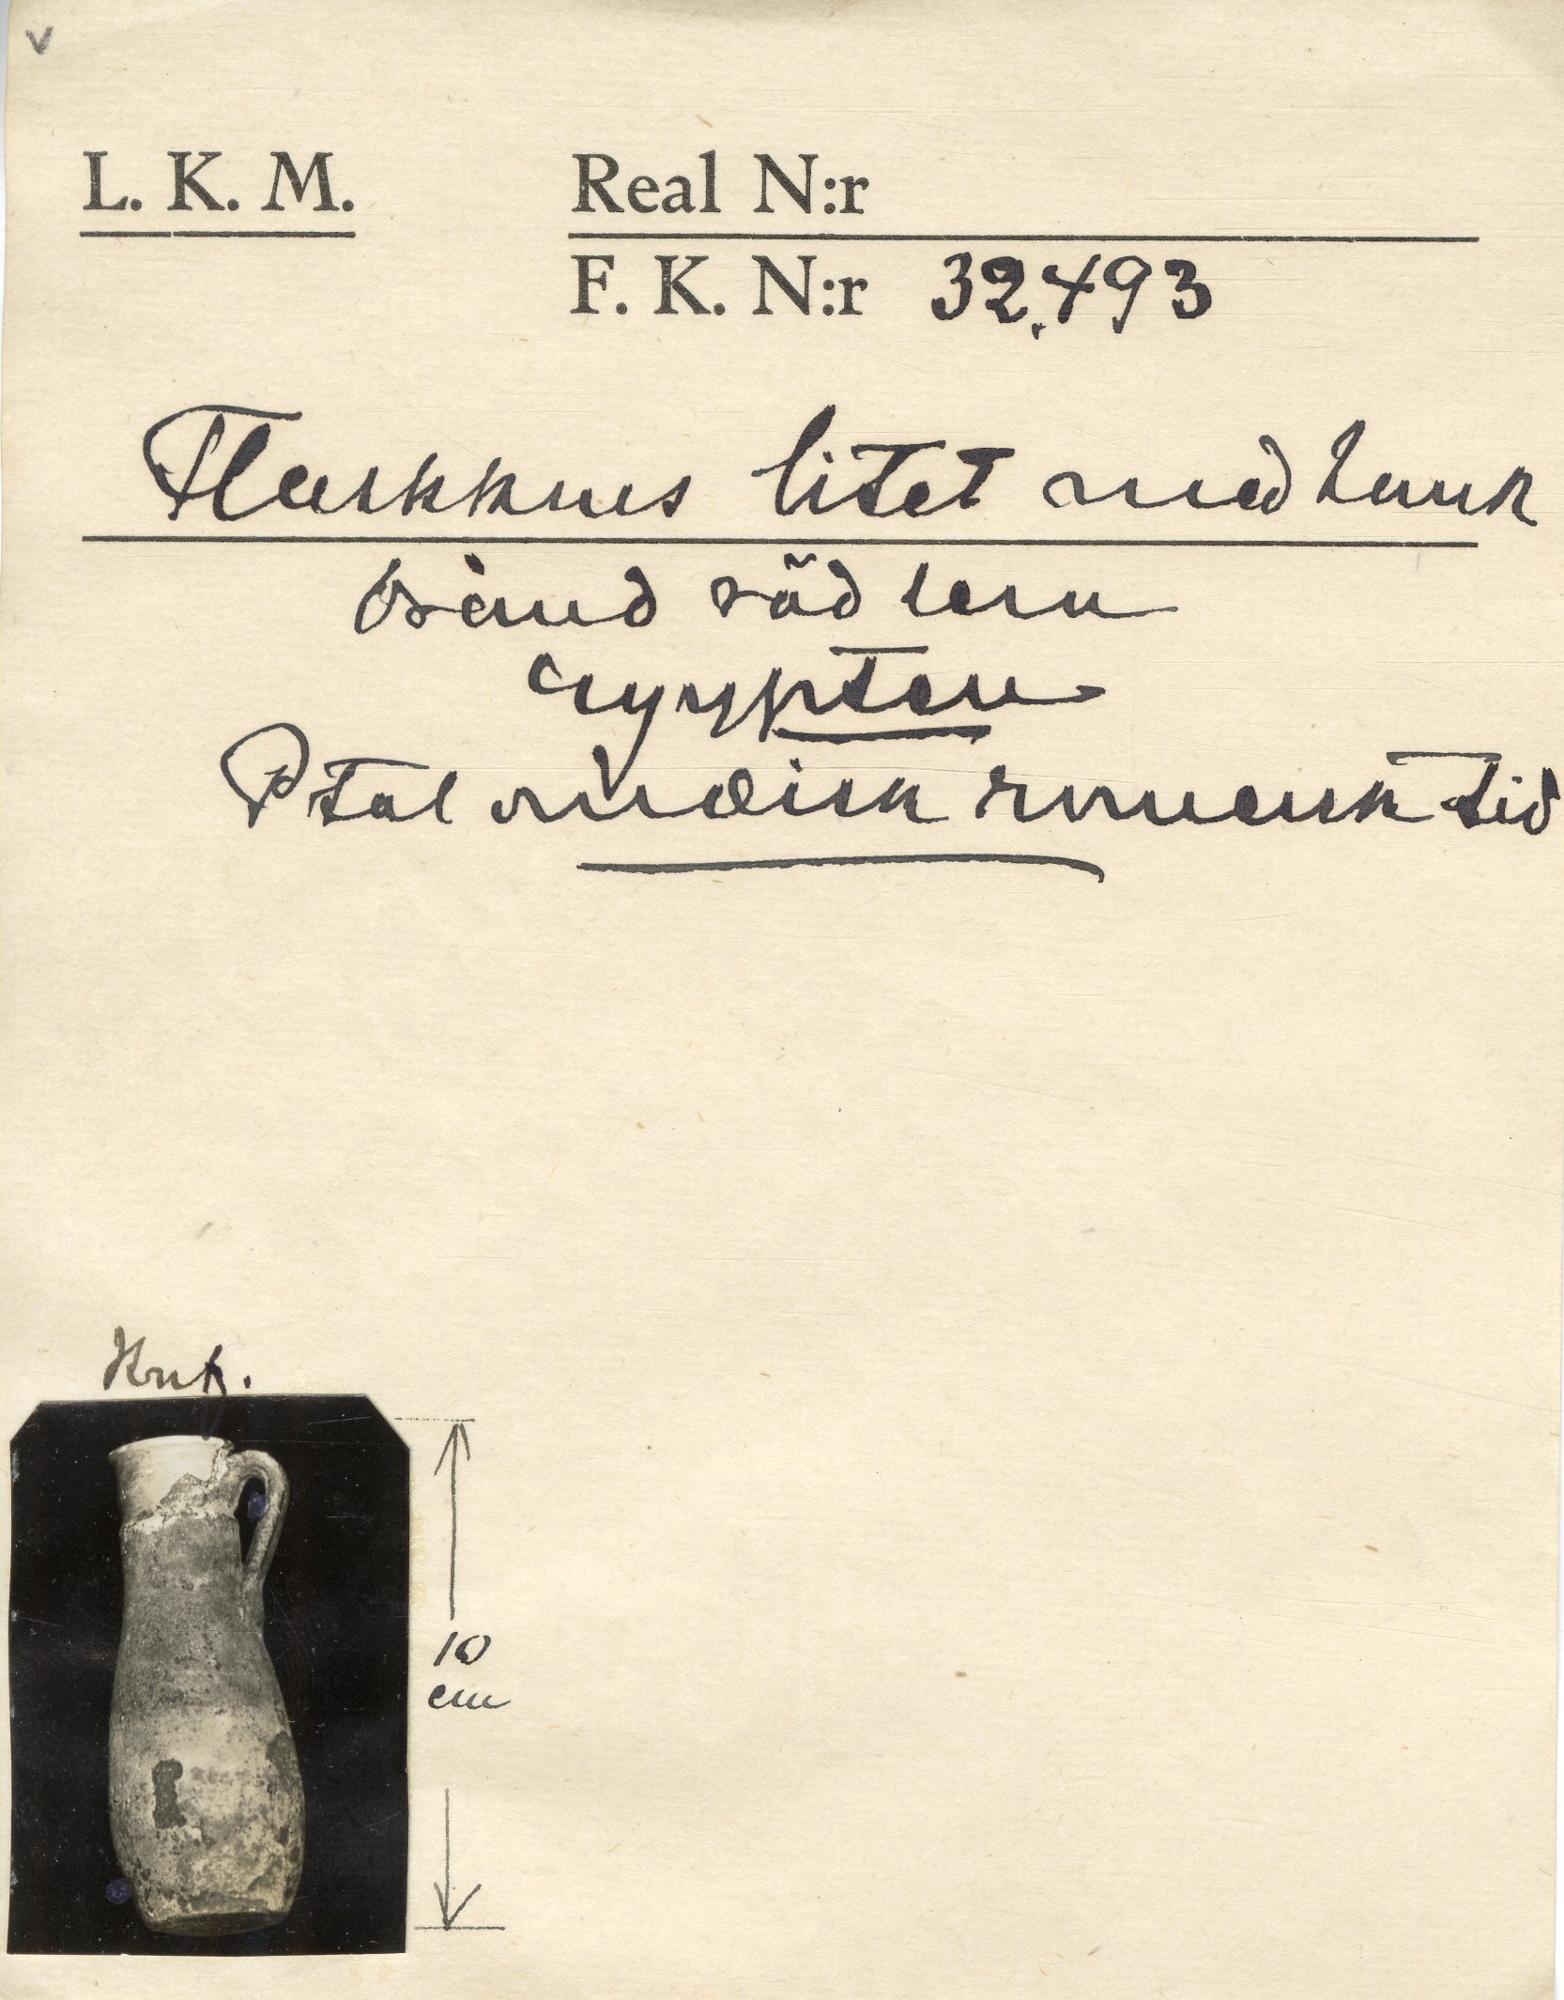 v
L. K. M.
Real N:r
F. K. N:r 32,493
Flaskkrus litet med hank
bränd röd lera
Egypten
Ptolomæisk romersk tid
10
cm